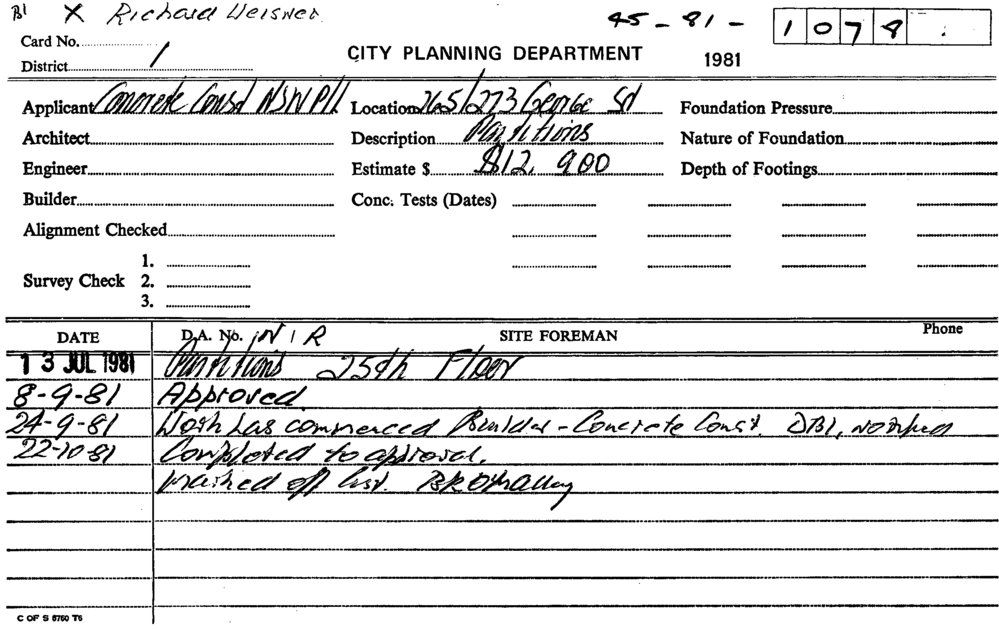 BI X Richard Heisner 45 - 81 - 1078
Card No.
District 1 CITY PLANNING DEPARTMENT 1981
Applicant Concrete Const NSW P/L Location 265/273 George St Foundation Pressure
Architect Description Partitions Nature of Foundation
Engineer Estimate $ $12,900 Depth of Footings
Builder Conc. Tests (Dates)
Alignment Checked
1.
Survey Check 2.
3.
DATE D.A. No. N I R SITE FOREMAN Phone
13 JUL 1981 Partitions 25th Floor
8-9-81 Approved.
24-9-81 Work has commenced Builder - Concrete Const. DBI, notified
22-10-81 Completed to approval.
marked off list.
C OF S 5760 T6